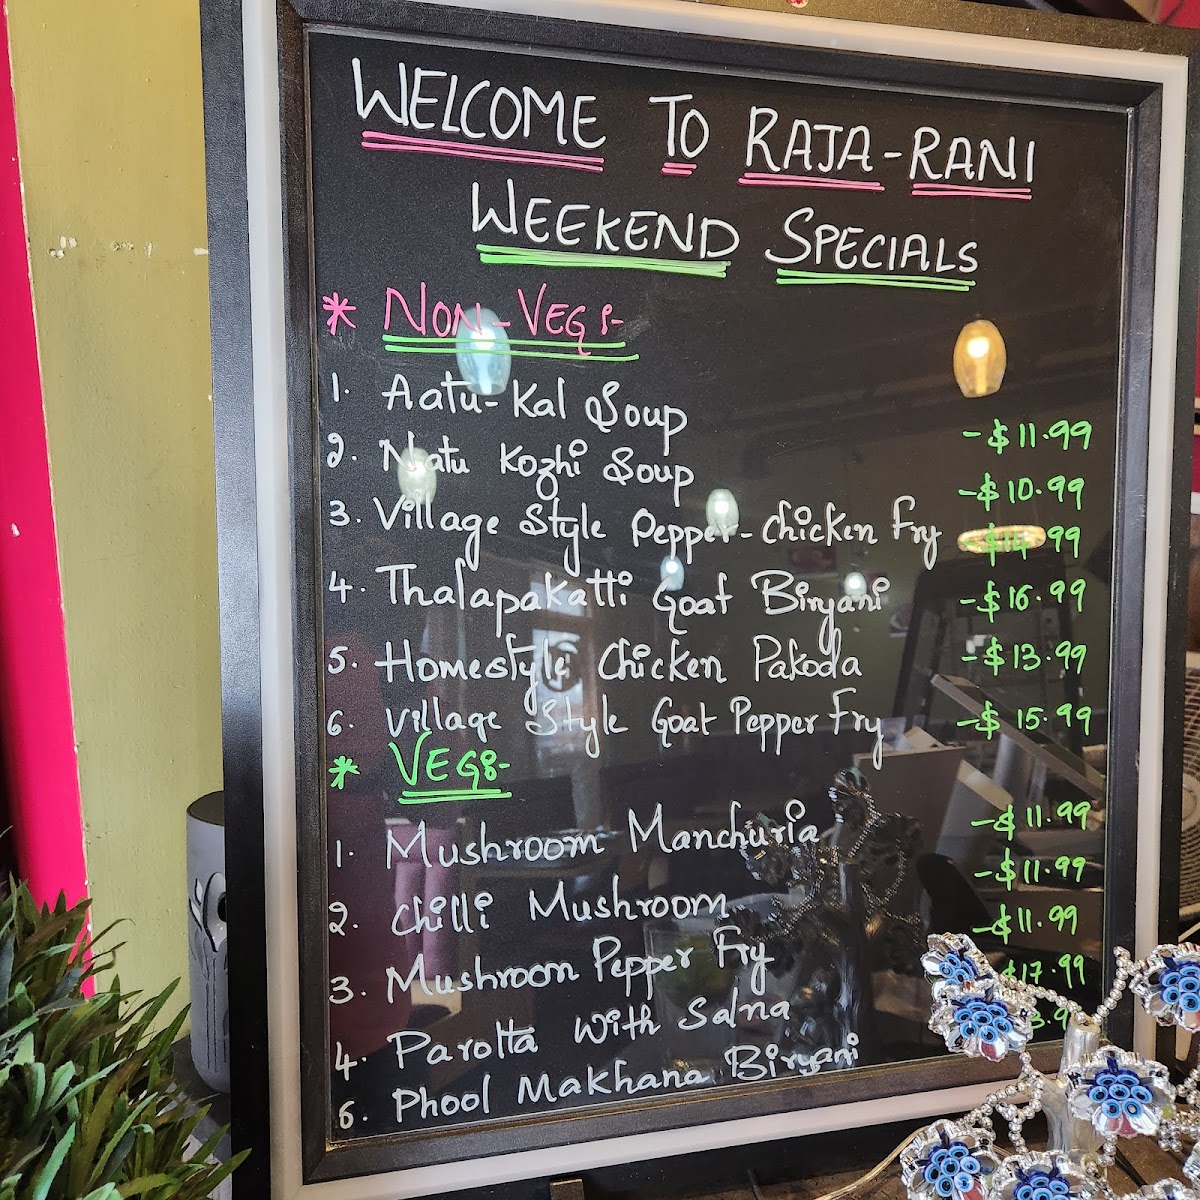 WELCOME TO RAJA-RANI
WEEKEND SPECIALS
* NON-VEG:-
1. Aatu-Kal Soup -$11.99
2. Natu Kozhi Soup -$10.99
3. Village Style Pepper-Chicken Fry -$14.99
4. Thalapakatti Goat Biryani -$16.99
5. Homestyle Chicken Pakoda -$13.99
6. Village Style Goat Pepper Fry -$15.99
* VEG:-
1. Mushroom Manchuria -$11.99
2. Chilli Mushroom -$11.99
3. Mushroom Pepper Fry -$11.99
4. Parotta With Salna $17.99
5. Phool Makhana Biryani